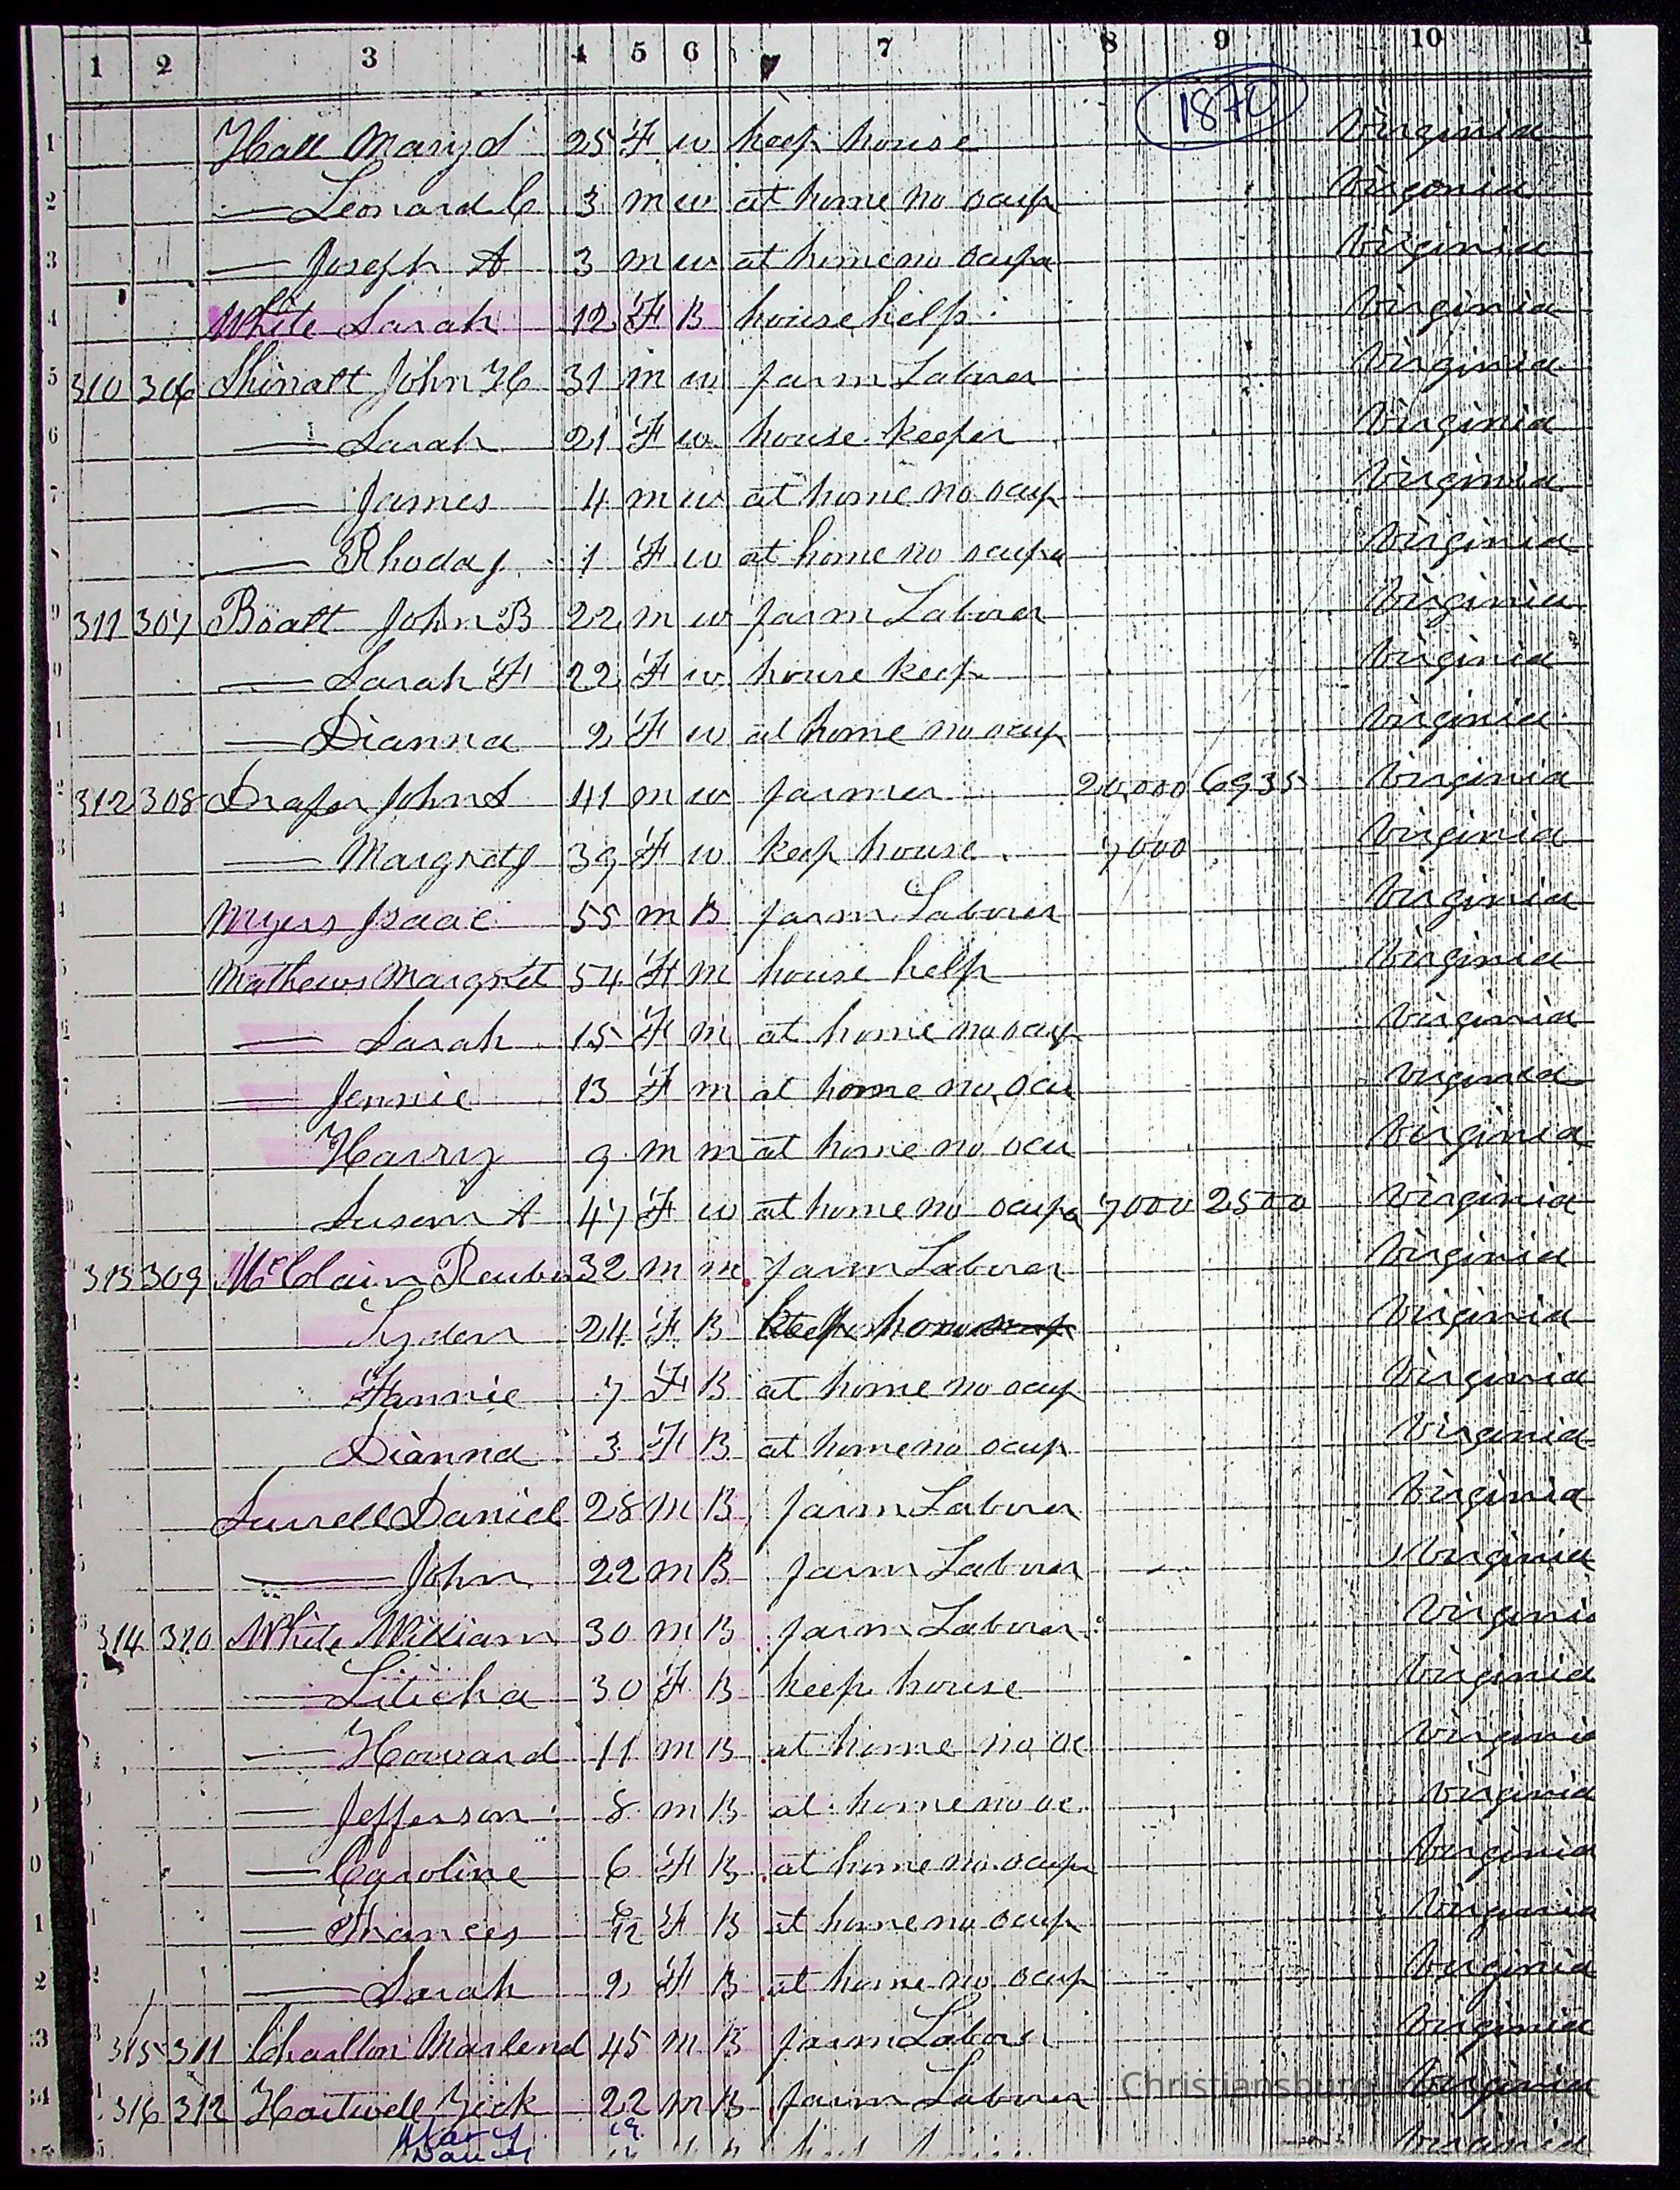 1 2 3 4 5 6 7 8 9 10 1
1870
1 Hall Mary d 25 F w keep house Virginia
2 — Leonard C 3 m w at home no ocup Virginia
3 — Joseph A 3 m w at home no ocupa Virginia
4 White Sarah 12 F B house help Virginia
5 310 306 John H 31 m w farm Laborer Virginia
6 — Sarah 21 F w house keeper Virginia
7 — James 4 m w at home no ocup Virginia
— Rhoda J 1 F w at home no ocupa Virginia
9 311 307 Boatt John B 22 m w farm Laborer Virginia
0 — Sarah F 22 F w house keep Virginia
1 — Dianna 2 F w at home no ocup Virginia
2 312 308 Draper John S 41 m w farmer 20,000 6935 Virginia
3 — Margret J 39 F w keep house 7000 Virginia
4 Myers Isaac 55 m B farm Laborer Virginia
Mathews Margret 54 F m house help Virginia
— Sarah 15 F m at home no ocup Virginia
— Jennie 13 F m at home no ocu Virginia
Harry 9 m m at home no ocu Virginia
Susan A 47 F w at home no ocupa 7000 2500 Virginia
313 309 McClain Reuben 32 m m farm Laborer Virginia
24 F B keep Virginia
Fannie 7 F B at home no ocup Virginia
Dianna 3 F B at home no ocup Virginia
Daniel 28 m B farm Laborer Virginia
— John 22 m B farm Laborer Virginia
314 310 White William 30 m B farm Laborer Virginia
— Liticha 30 F B keep house Virginia
— Howard 11 m B at home no oc Virginia
— Jefferson 8 m B at home no oc Virginia
0 — Caroline 6 F B at home no ocup Virginia
1 — Frances 12 F B at home no ocup Virginia
2 — Sarah 2 F B at home no ocup Virginia
3 315 311 Charlton Marlend 45 m B farm Laborer Virginia
34 316 312 Hartwell Zick 22 m B farm Laborer Virginia
Christiansburg
Mary 19 Virginia